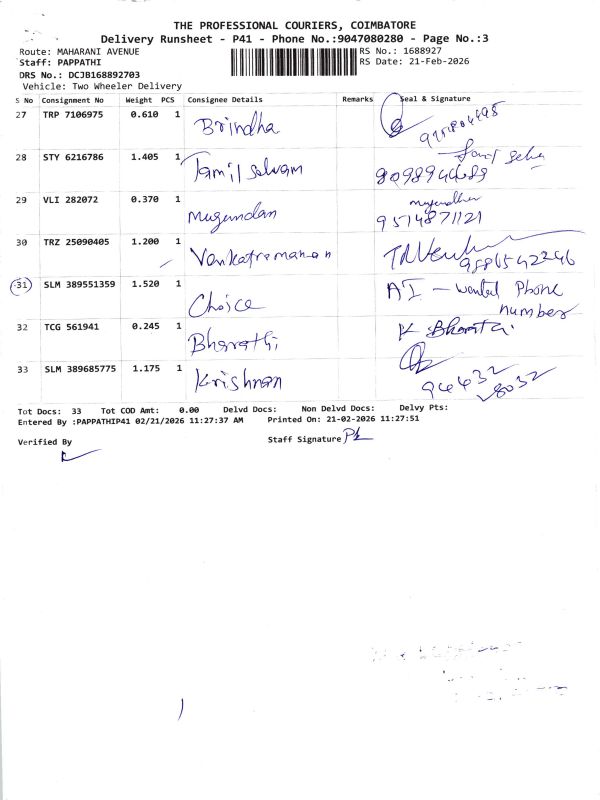 THE PROFESSIONAL COURIERS, COIMBATORE
Delivery Runsheet - P41 - Phone No.:9047080280 - Page No.:3
Route: MAHARANI AVENUE
RS No.: 1688927
Staff: PAPPATHI
RS Date: 21-Feb-2026
DRS No.: DCJB168892703
Vehicle: Two Wheeler Delivery
S No Consignment No Weight PCS Consignee Details Remarks Seal & Signature
27 TRP 7106975 0.610 1 Brindha
28 STY 6216786 1.405 1 Tamil Selvam
8098944689
29 VLI 282072 0.370 1 Mugundan
9514871121
30 TRZ 25090405 1.200 1 Venkatremanan
31 SLM 389551359 1.520 1 Choice AI - wanted Phone
number
32 TCG 561941 0.245 1 Bharathi K Bharathi
33 SLM 389685775 1.175 1 Krishnan
94432
8032
Tot Docs: 33 Tot COD Amt: 0.00 Delvd Docs: Non Delvd Docs: Delvy Pts:
Entered By :PAPPATHIP41 02/21/2026 11:27:37 AM Printed On: 21-02-2026 11:27:51
Verified By
Staff Signature